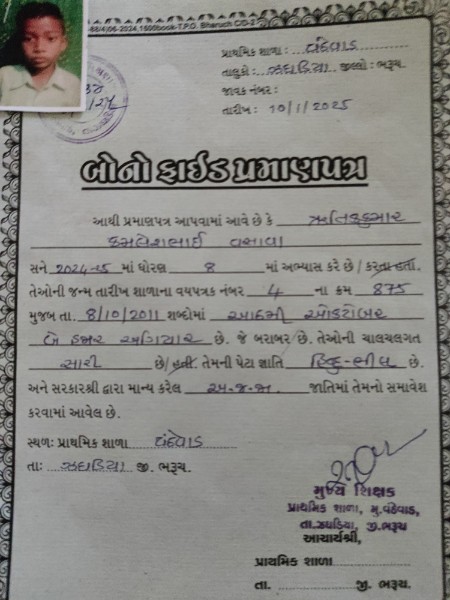 -88/4)06-2024,1600book-T.P.O. Bharuch C/G-2
પ્રાથમિક શાળા : વંઠેવાડ
તાલુકો : ઝઘડિયા જીલ્લો : ભરૂચ.
જાવક નંબર :
તારીખ : 10/1/2025
બોનોફાઈડ પ્રમાણપત્ર
આથી પ્રમાણપત્ર આપવામાં આવે છે કે ઋત્વિકકુમાર
કમલેશભાઈ વસાવા
સને 2024-25 માં ધોરણ 8 માં અભ્યાસ કરે છે / કરતા હતાં.
તેઓની જન્મ તારીખ શાળાના વયપત્રક નંબર 4 ના ક્રમ 875
મુજબ તા. 8/10/2011 શબ્દોમાં આઠમી ઓક્ટોબર
બે હજાર અગિયાર છે. જે બરાબર છે. તેઓની ચાલચલગત
સારી છે/હતી. તેમની પેટા જ્ઞાતિ હિન્દુ-ભીલ છે.
અને સરકારશ્રી દ્વારા માન્ય કરેલ અ.જ.જા. જાતિમાં તેમનો સમાવેશ
કરવામાં આવેલ છે.
સ્થળ: પ્રાથમિક શાળા વંઠેવાડ
તા: ઝઘડિયા જી. ભરૂચ.
મુખ્ય શિક્ષક
પ્રાથમિક શાળા, મુ.વંઠેવાડ,
તા.ઝઘડિયા, જી.ભરૂચ
આચાર્યશ્રી,
પ્રાથમિક શાળા
તા. જી. ભરૂચ.